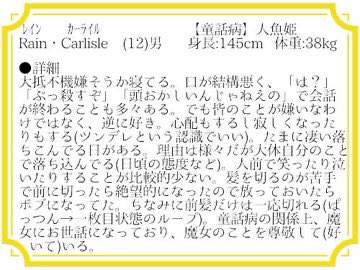 ﾚｲﾝ ｶｰﾗｲﾙ 【童話病】人魚姫
Rain・Carlisle (12)男 身長:145cm 体重:38kg
●詳細
大抵不機嫌そうか寝てる。口が結構悪く、「は？」
「ぶっ殺すぞ」「頭おかしいんじゃねえの」で会話
が終わることも多々ある。でも皆のことが嫌いなわ
けではなく、逆に好き。心配もするし寂しくなった
りもする(ツンデレという認識でいい)。たまに凄い落
ちこんでる日がある。理由は様々だが大体自分のこと
で落ち込んでる(日頃の態度など)。人前で笑ったり泣
いたりすることが比較的少ない。髪を切るのが苦手
で前に切ったら絶望的になったので放っておいたら
ボブになってた。ちなみに前髪だけは一応切れる(ぱ
っつん→一枚目状態のループ)。童話病の関係上、魔
女にお世話になっており、魔女のことを尊敬して(好
いて)いる。